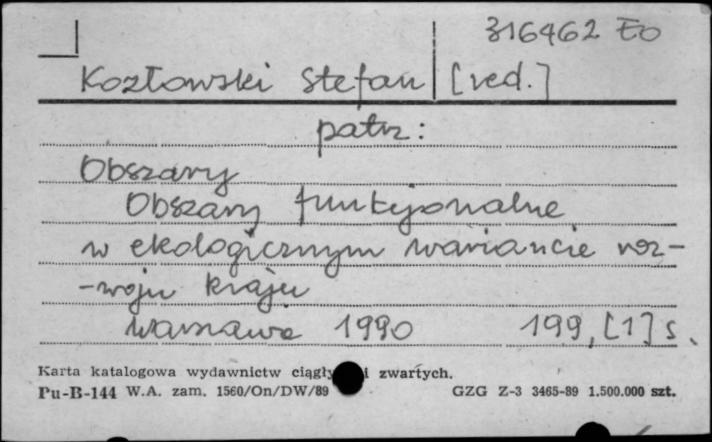 316462 EO
Kozłowski Stefan [red.]
patrz:
Obszary
Obszary funkcjonalne
w ekologicznym wariancie roz-
-woju kraju
Warszawa 1990 199, [1] s.
Karta katalogowa wydawnictw ciągły i zwartych.
Pu-B-144 W.A. zam. 1560/On/DW/89 GZG Z-3 3465-89 1.500.000 szt.